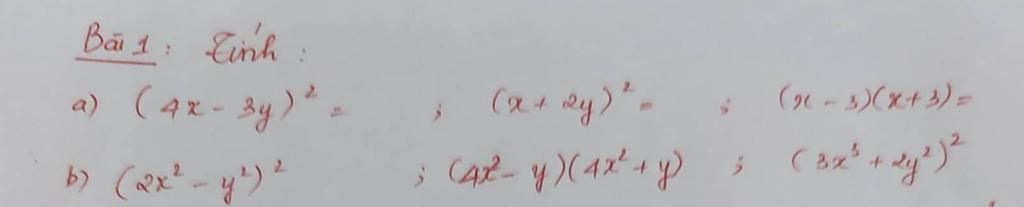 Bài 1 : Tính :
a) (4x - 3y)² = ; (x + 2y)² = ; (x - 3)(x + 3) =
b) (2x² - y²)² ; (4x² - y)(4x² + y) ; (3x³ + 2y²)²